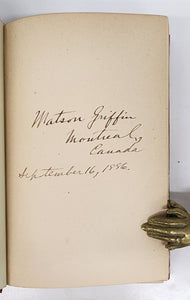 Watson Griffin
Montreal,
Canada
September 16, 1896.